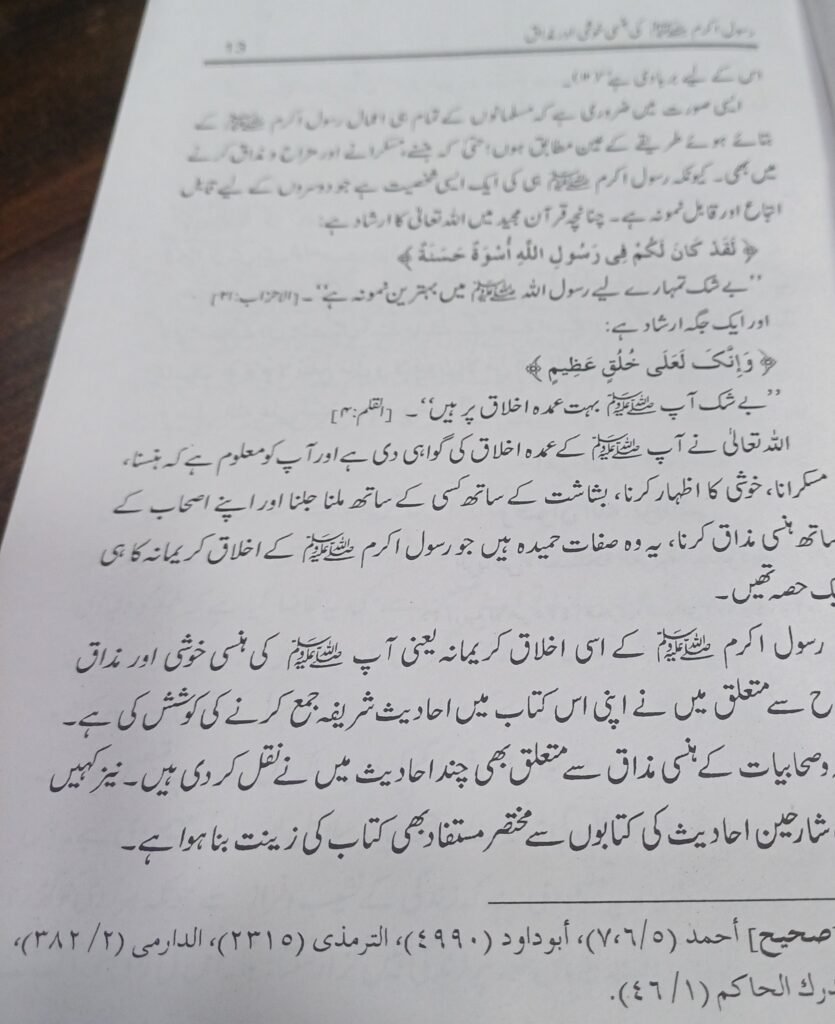 رسول اکرم ﷺ کی ہنسی خوشی اور مذاق
13
اس کے لیے بربادی ہے
ایسی صورت میں ضروری ہے کہ مسلمانوں کے تمام ہی اعمال رسول اکرم ﷺ کے
بتائے ہوئے طریقے کے عین مطابق ہوں؛ حتیٰ کہ ہنسنے، مسکرانے اور مزاح و مذاق کرنے
میں بھی۔ کیونکہ رسول اکرم ﷺ ہی کی ایک ایسی شخصیت ہے جو دوسروں کے لیے قابل
اتباع اور قابل نمونہ ہے۔ چنانچہ قرآن مجید میں اللہ تعالیٰ کا ارشاد ہے:
﴿ لَقَدْ كَانَ لَكُمْ فِى رَسُولِ اللَّهِ أُسْوَةٌ حَسَنَةٌ ﴾
’’بے شک تمہارے لیے رسول اللہ ﷺ میں بہترین نمونہ ہے‘‘۔ [الاحزاب:۲۱]
اور ایک جگہ ارشاد ہے:
﴿ وَإِنَّکَ لَعَلَى خُلُقٍ عَظِيمٍ ﴾
’’بے شک آپ ﷺ بہت عمدہ اخلاق پر ہیں‘‘۔ [القلم:۴]
اللہ تعالیٰ نے آپ ﷺ کے عمدہ اخلاق کی گواہی دی ہے اور آپ کو معلوم ہے کہ ہنسنا،
مسکرانا، خوشی کا اظہار کرنا، بشاشت کے ساتھ کسی کے ساتھ ملنا جلنا اور اپنے اصحاب کے
ساتھ ہنسی مذاق کرنا، یہ وہ صفات حمیدہ ہیں جو رسول اکرم ﷺ کے اخلاق کریمانہ کا ہی
یک حصہ تھیں۔
رسول اکرم ﷺ کے اسی اخلاق کریمانہ یعنی آپ ﷺ کی ہنسی خوشی اور مذاق
ح سے متعلق میں نے اپنی اس کتاب میں احادیث شریفہ جمع کرنے کی کوشش کی ہے۔
وصحابیات کے ہنسی مذاق سے متعلق بھی چند احادیث میں نے نقل کر دی ہیں۔ نیز کہیں
شارحین احادیث کی کتابوں سے مختصر مستفاد بھی کتاب کی زینت بنا ہوا ہے۔
صحيح] أحمد (٥/٧،٦)، أبوداود (٤٩٩٠)، الترمذى (٢٣١٥)، الدارمى (٢/ ٣٨٢)،
درك الحاكم (١/ ٤٦).